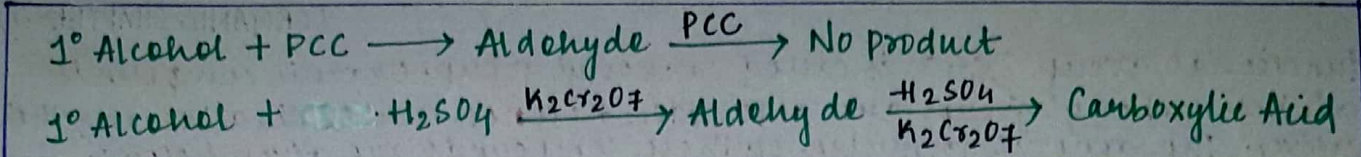 1° Alcohol + PCC ⟶ Aldehyde —PCC→ No product
1° Alcohol + H2SO4 —K2Cr2O7→ Aldehyde —H2SO4/K2Cr2O7→ Carboxylic Acid